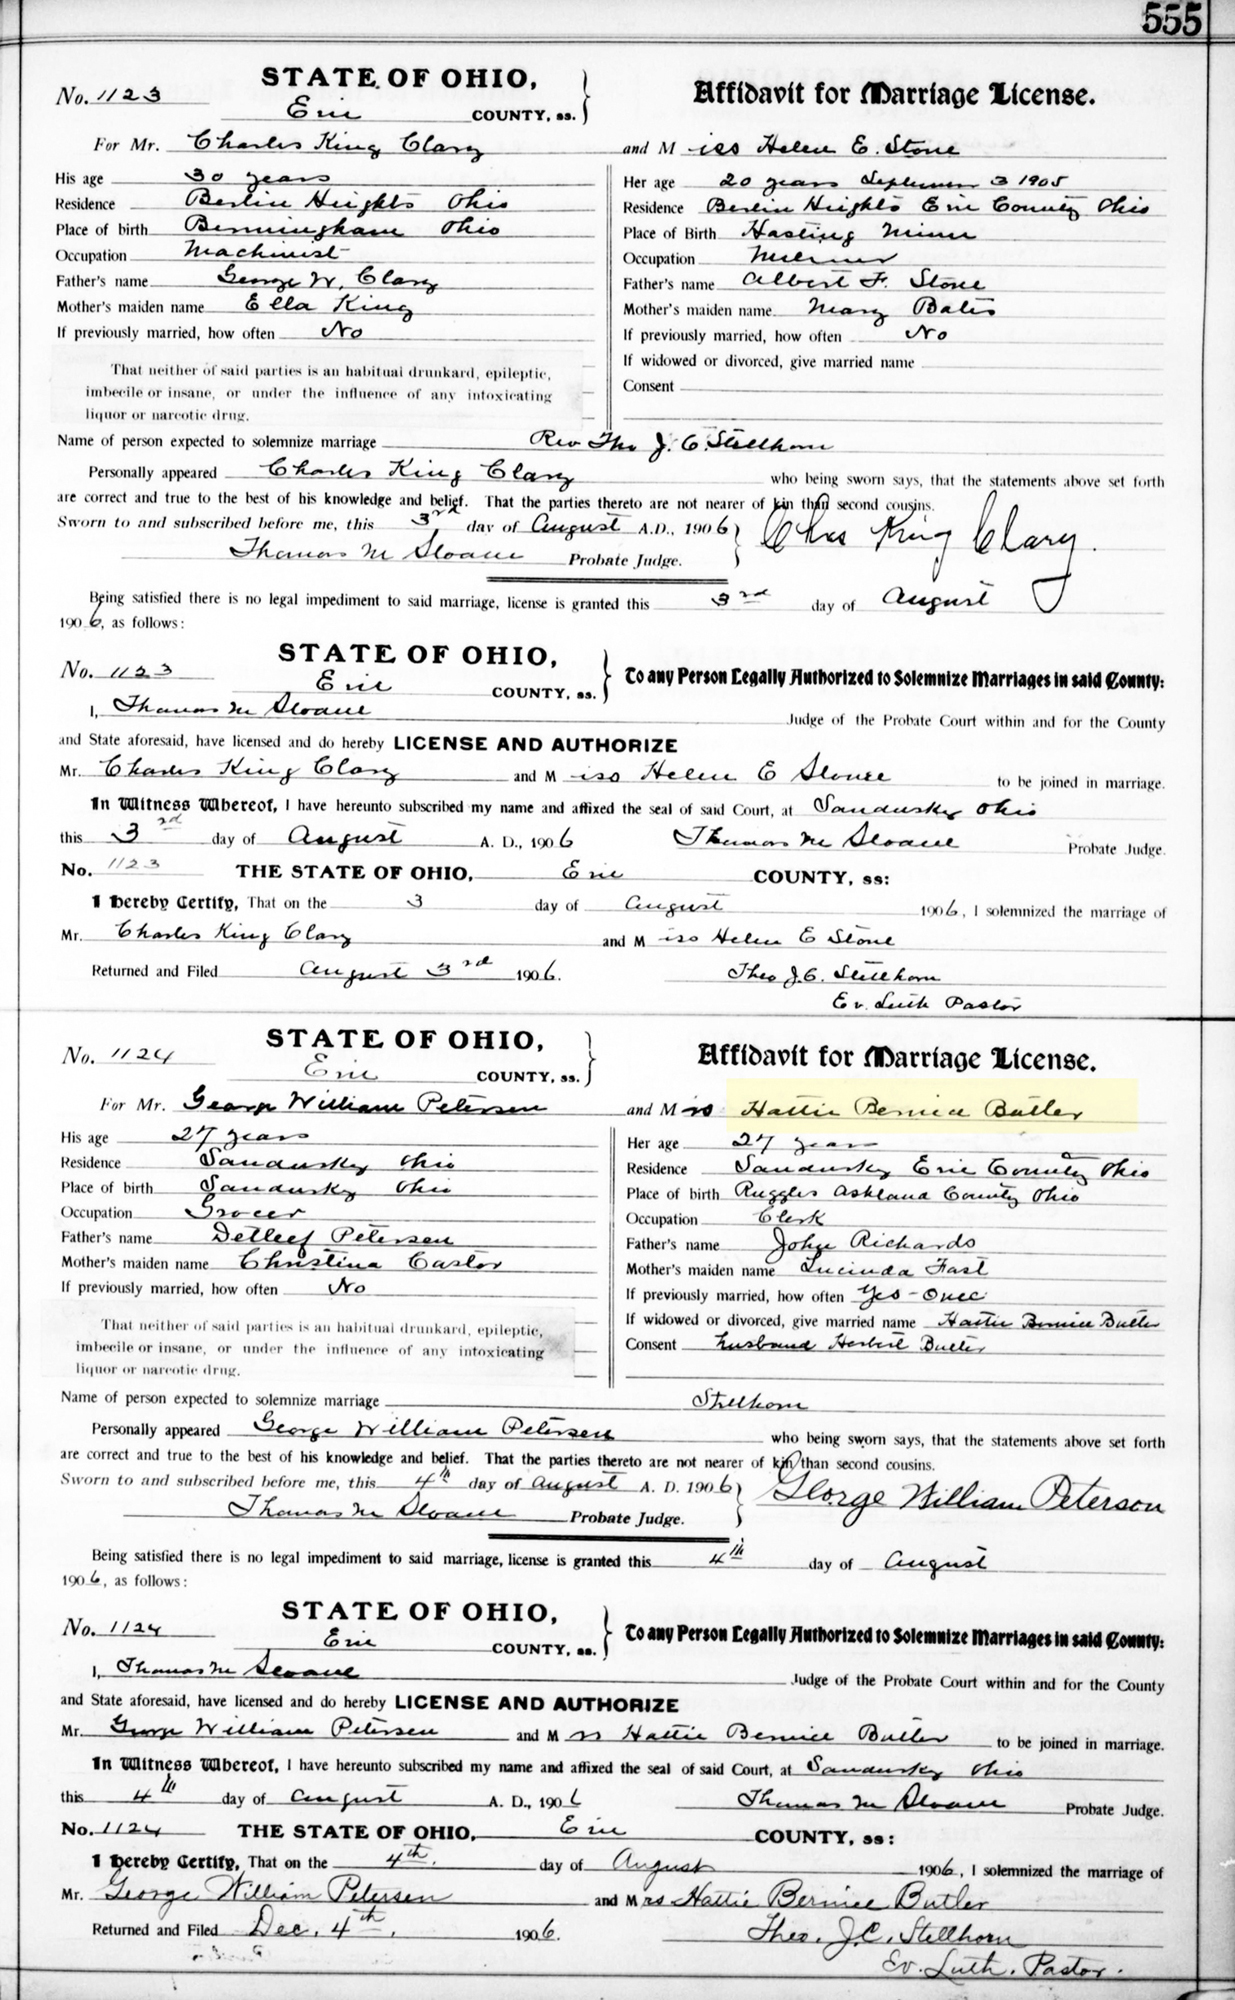 555
No. 1123 STATE OF OHIO, Erie COUNTY, ss. } Affidavit for Marriage License.
For Mr. Charles King Clary and Miss Helen E. Stone
His age 30 years
Her age 20 years September 3 1905
Residence Berlin Heights Ohio
Residence Berlin Heights Erie County Ohio
Place of birth Bermingham Ohio
Place of Birth Hasting Minn
Occupation Machinist
Occupation Milliner
Father's name George W. Clary
Father's name Albert F. Stone
Mother's maiden name Ella King
Mother's maiden name Mary Bates
If previously married, how often No
If previously married, how often No
If widowed or divorced, give married name
Consent
That neither of said parties is an habitual drunkard, epileptic,
imbecile or insane, or under the influence of any intoxicating
liquor or narcotic drug.
Name of person expected to solemnize marriage Rev Theo J. C. Stellhorn
Personally appeared Charles King Clary who being sworn says, that the statements above set forth
are correct and true to the best of his knowledge and belief. That the parties thereto are not nearer of kin than second cousins.
Sworn to and subscribed before me, this 3rd day of August A.D., 1906 } Chas King Clary.
Thomas M Sloane Probate Judge.
Being satisfied there is no legal impediment to said marriage, license is granted this 3rd day of August
1906, as follows:
No. 1123 STATE OF OHIO, Erie COUNTY, ss. } To any Person Legally Authorized to Solemnize Marriages in said County:
I, Thomas M Sloane Judge of the Probate Court within and for the County
and State aforesaid, have licensed and do hereby LICENSE AND AUTHORIZE
Mr. Charles King Clary and Miss Helen E Stone to be joined in marriage.
In Witness Whereof, I have hereunto subscribed my name and affixed the seal of said Court, at Sandusky Ohio
this 3rd day of August A. D., 1906 Thomas M Sloane Probate Judge.
No. 1123 THE STATE OF OHIO, Erie COUNTY, ss:
I hereby Certify, That on the 3 day of August 1906, I solemnized the marriage of
Mr. Charles King Clary and Miss Helen E Stone
Returned and Filed August 3rd 1906. Theo J. C. Stellhorn
Ev. Luth Pastor
No. 1124 STATE OF OHIO, Erie COUNTY, ss. } Affidavit for Marriage License.
For Mr. George William Petersen and Mrs Hattie Bernice Butler
His age 27 years
Her age 27 years
Residence Sandusky Ohio
Residence Sandusky Erie County Ohio
Place of birth Sandusky Ohio
Place of birth Ruggles Ashland County Ohio
Occupation Grocer
Occupation Clerk
Father's name Detleef Petersen
Father's name John Richards
Mother's maiden name Christina Castor
Mother's maiden name Lucinda Fast
If previously married, how often No
If previously married, how often Yes - Once
If widowed or divorced, give married name Hattie Bernice Butler
Consent husband Herbert Butler
That neither of said parties is an habitual drunkard, epileptic,
imbecile or insane, or under the influence of any intoxicating
liquor or narcotic drug.
Name of person expected to solemnize marriage Stellhorn
Personally appeared George William Petersen who being sworn says, that the statements above set forth
are correct and true to the best of his knowledge and belief. That the parties thereto are not nearer of kin than second cousins.
Sworn to and subscribed before me, this 4th day of August A. D. 1906 } George William Peterson
Thomas M Sloane Probate Judge.
Being satisfied there is no legal impediment to said marriage, license is granted this 4th day of August
1906, as follows:
No. 1124 STATE OF OHIO, Erie COUNTY, ss. } To any Person Legally Authorized to Solemnize Marriages in said County:
I, Thomas M Sloane Judge of the Probate Court within and for the County
and State aforesaid, have licensed and do hereby LICENSE AND AUTHORIZE
Mr. George William Petersen and Mrs Hattie Bernice Butler to be joined in marriage.
In Witness Whereof, I have hereunto subscribed my name and affixed the seal of said Court, at Sandusky Ohio
this 4th day of August A. D., 1906 Thomas M Sloane Probate Judge.
No. 1124 THE STATE OF OHIO, Erie COUNTY, ss:
I hereby Certify, That on the 4th. day of August 1906, I solemnized the marriage of
Mr. George William Petersen and Mrs Hattie Bernice Butler
Returned and Filed Dec. 4th. 1906. Theo. J. C. Stellhorn
Ev. Luth. Pastor.